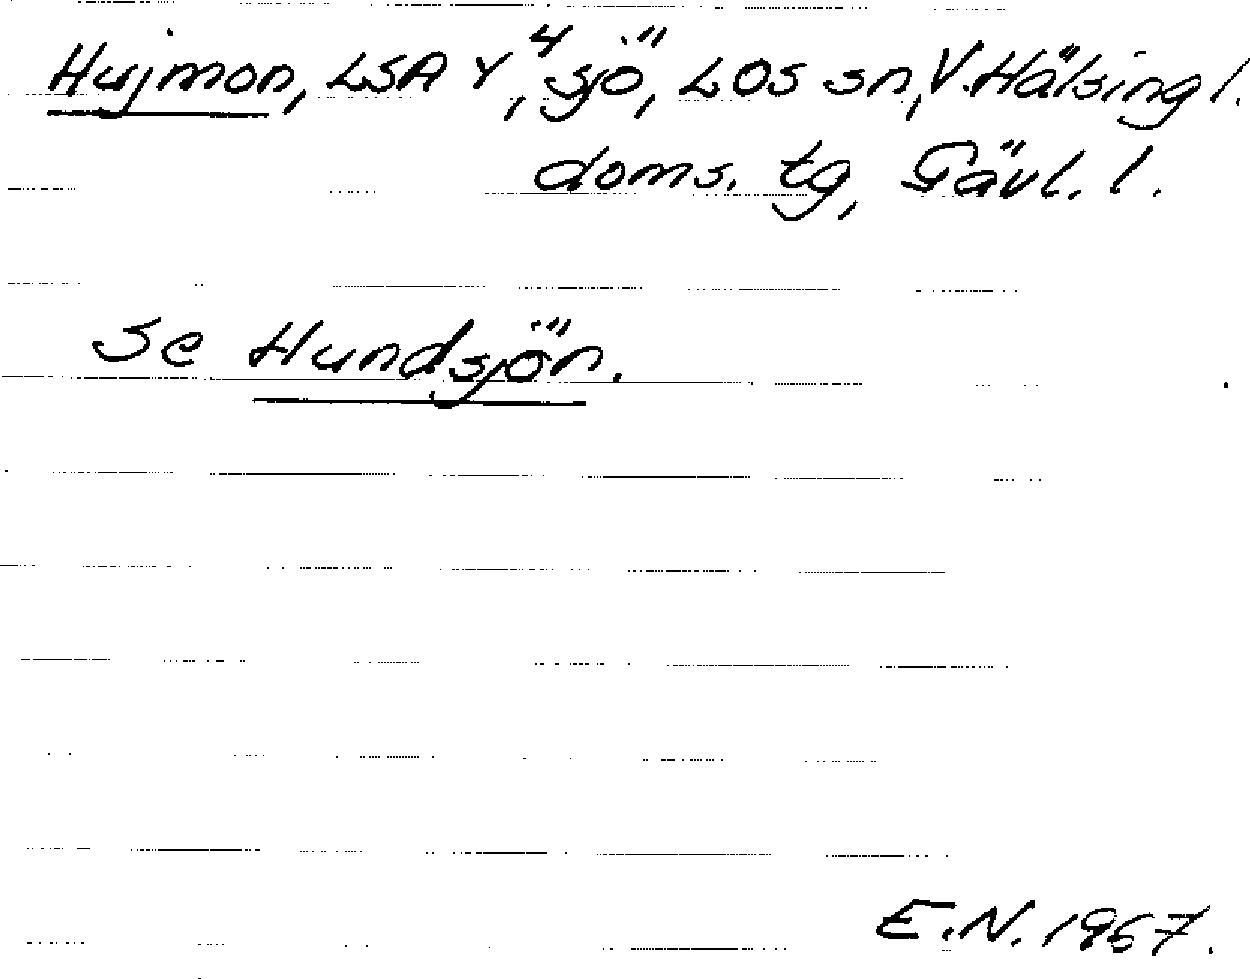 Hujmon, LSA Y⁴, sjö, LOS sn, V. Hälsingl.
doms. tg, Gävl. l.
Se Hundsjön.
E.N. 1967.